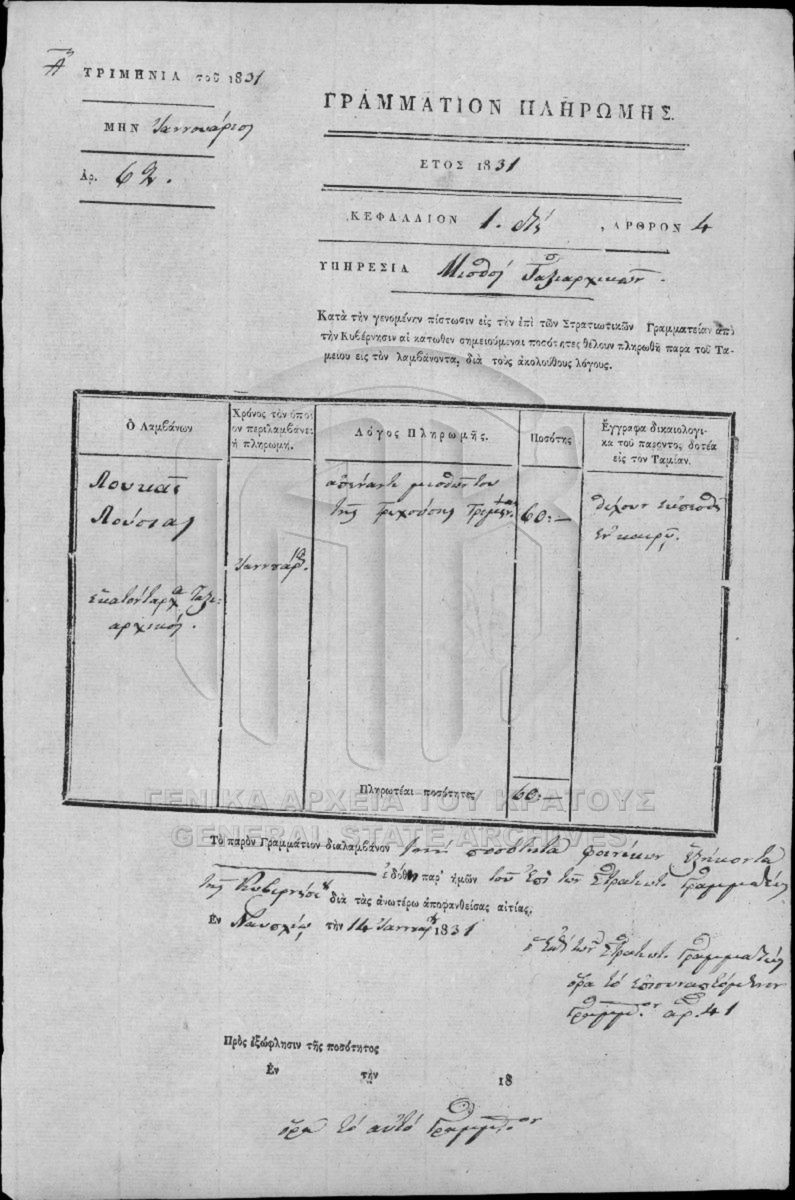 Α ΤΡΙΜΗΝΙΑ τοῦ 1831
ΜΗΝ Ἰαννουάριος
Ἀρ. 62.
ΓΡΑΜΜΑΤΙΟΝ ΠΛΗΡΩΜΗΣ.
ΕΤΟΣ 1831
ΚΕΦΑΛΑΙΟΝ 1. , ΑΡΘΡΟΝ 4
ΥΠΗΡΕΣΙΑ Μισθοί Ταξιαρχικῶν.
Κατὰ τὴν γενομένην πίστωσιν εἰς τὴν ἐπὶ τῶν Στρατιωτικῶν Γραμματείαν ἀπὸ
τὴν Κυβέρνησιν αἱ κάτωθεν σημειούμεναι ποσότητες θέλουν πληρωθῆ παρὰ τοῦ Τα-
μείου εἰς τὸν λαμβάνοντα, διὰ τοὺς ἀκολούθους λόγους.
Ὁ Λαμβάνων
Χρόνος τὸν ὁποῖ
ον περιλαμβάνει
ἡ πληρωμή.
Λόγος Πληρωμῆς.
Ποσότης
Ἔγγραφα δικαιολογι-
κὰ τοῦ παρόντος δοτέα
εἰς τὸν Ταμίαν.
Λουκᾶς
Λούσιας
ἑκατόνταρχ. Ταξι-
αρχικός.
Ἰαννουάρ.
ἀπέναντι μισθῶν του
τῆς τρεχούσης τριμην.
60:—
θέλουν
ἐν καιρῷ.
Πληρωτέαι ποσότητες
60:
ΓΕΝΙΚΑ ΑΡΧΕΙΑ ΤΟΥ ΚΡΑΤΟΥΣ
GENERAL STATE ARCHIVES
Τὸ παρὸν Γραμμάτιον διαλαμβάνον ποσότητα φοινίκων ἑξήκοντα
ἐδόθη παρ' ἡμῶν τοῦ ἐπὶ τῶν Στρατιωτ. Γραμματέως
τῆς Κυβερνήσεως διὰ τὰς ἀνωτέρω ἀποφανθείσας αἰτίας.
Ἐν Ναυπλίῳ τὴν 14 Ἰαννουαρ. 1831
ὁ ἐπὶ τῶν Στρατιωτ. Γραμματεύς
ὅρα τὸ ἐπισυναπτόμενον
Γραμμ. ἀρ. 41
Πρὸς ἐξώφλησιν τῆς ποσότητος
Ἐν τὴν 18
ὅρα τὸ αὐτὸ Γραμμ.